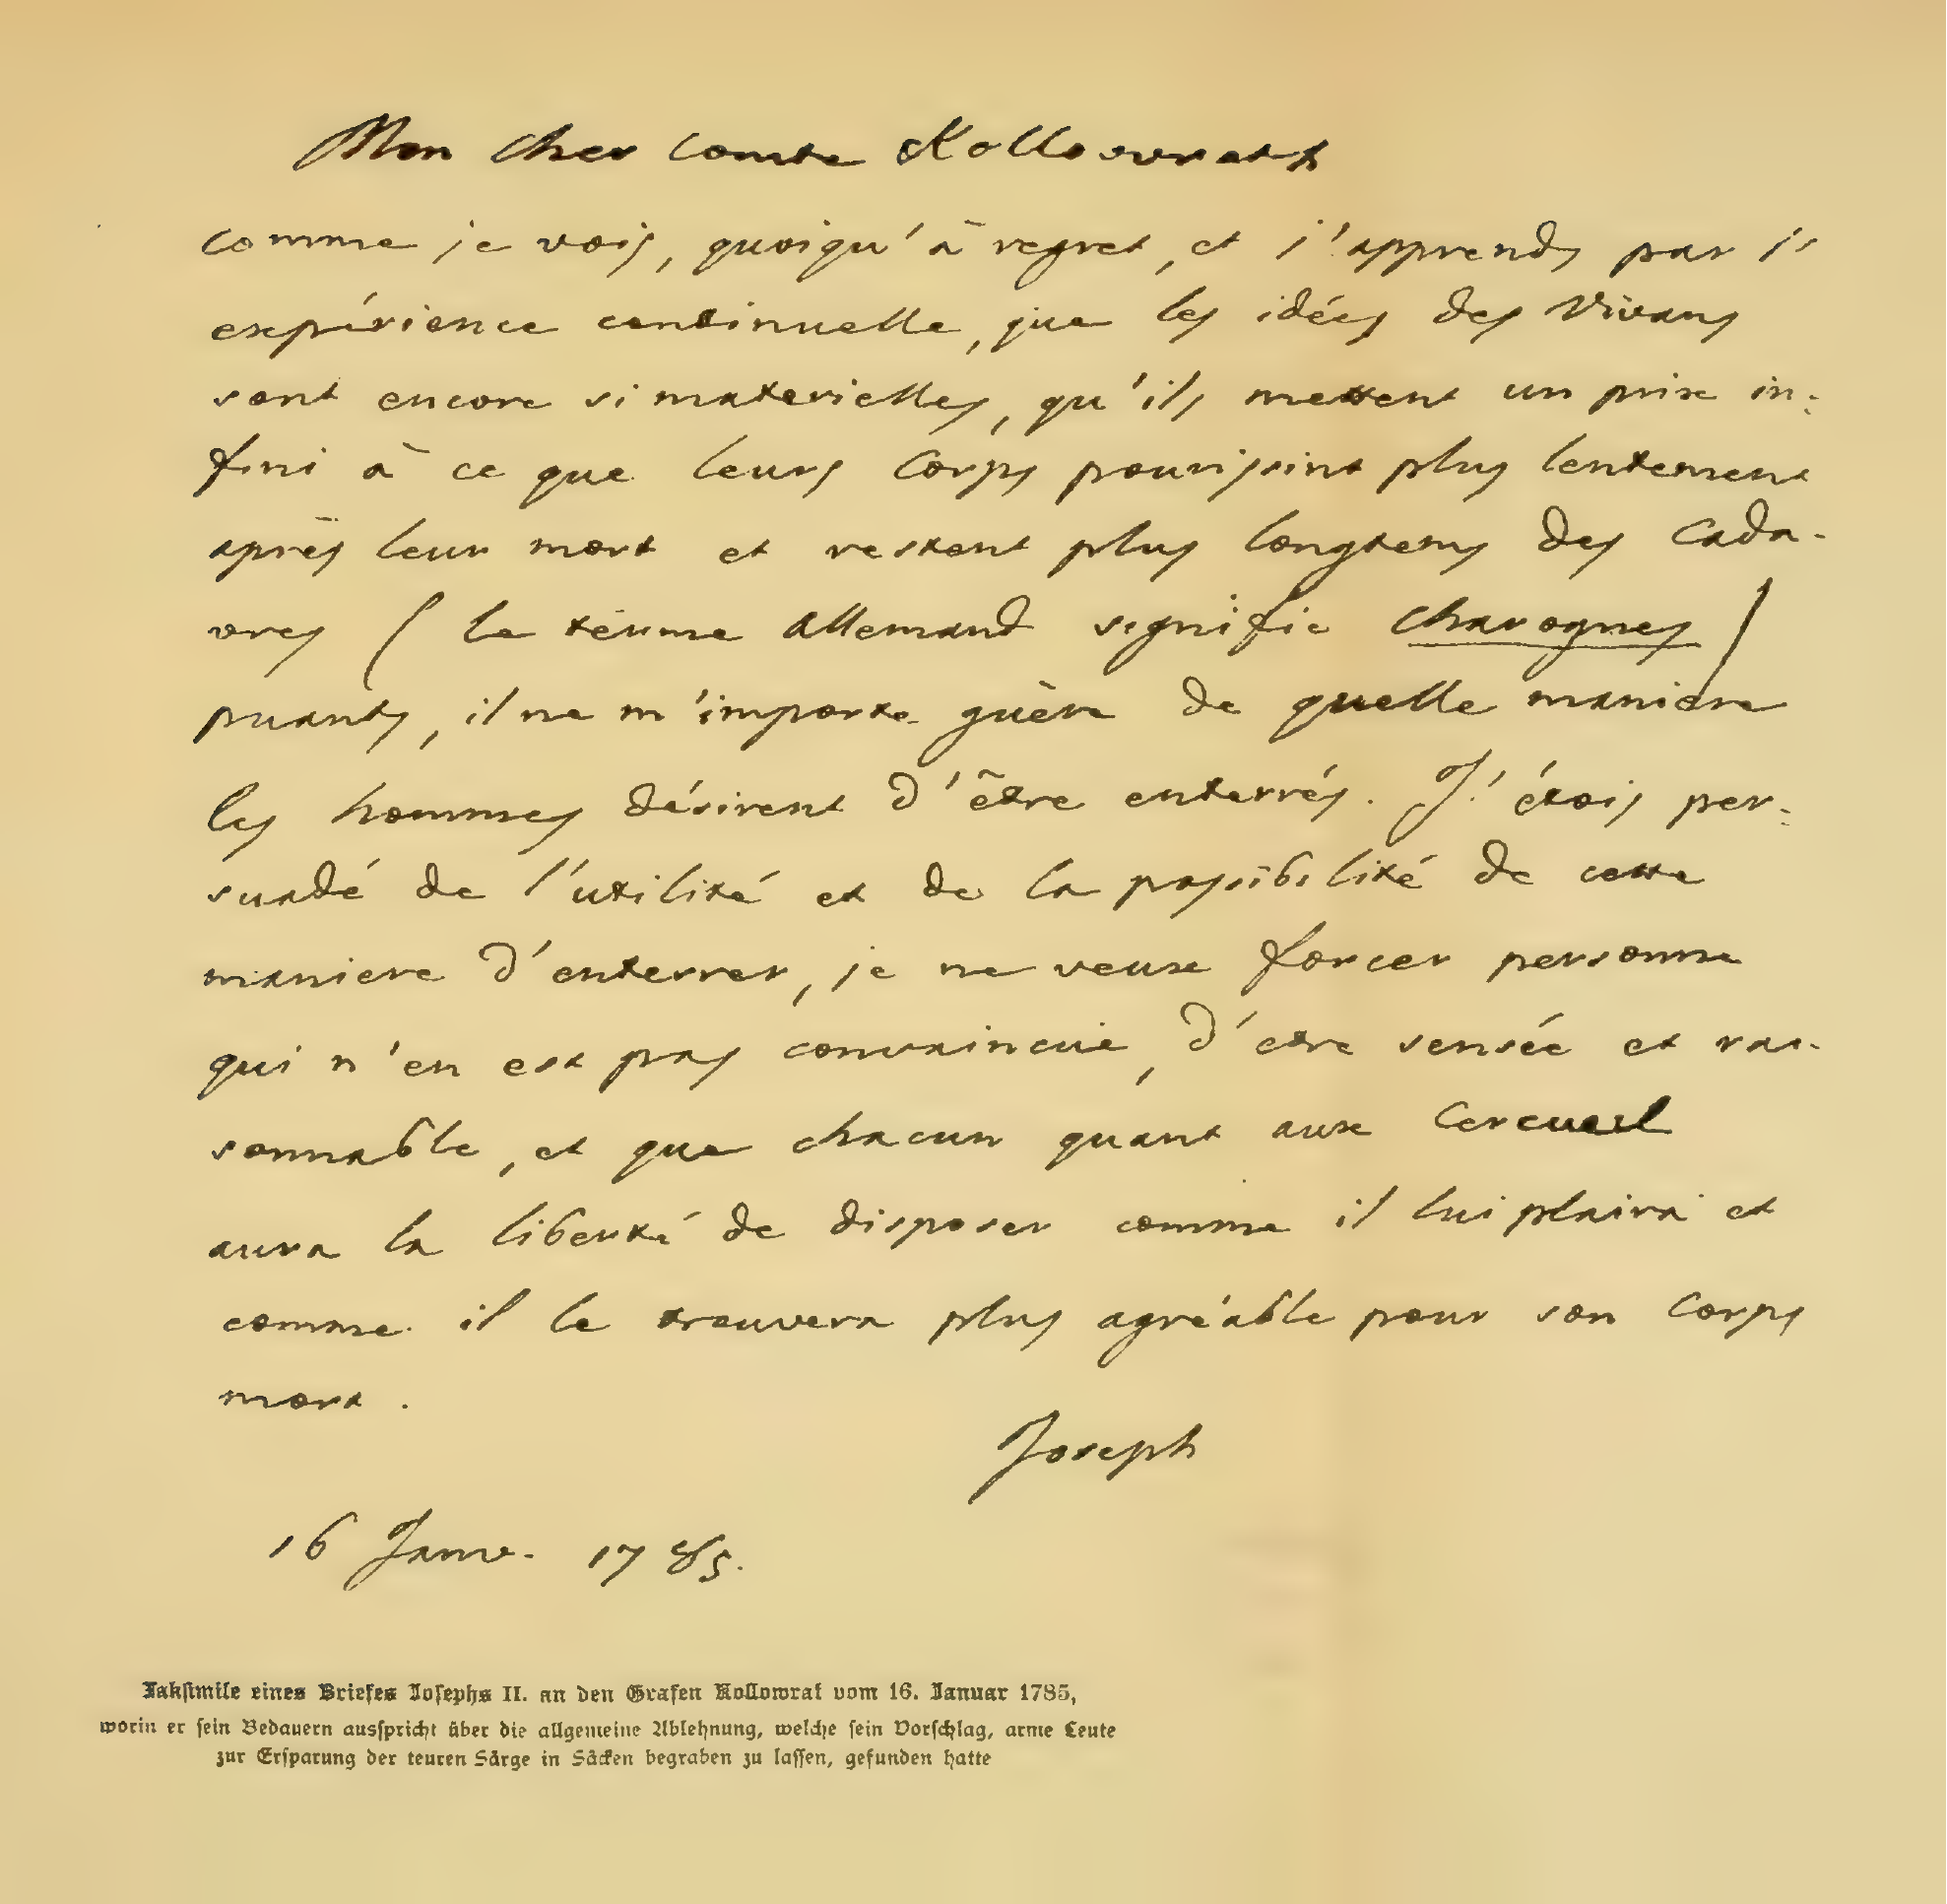 Mon cher Comte Kollowrath
comme je vois, quoiqu'à regret, et j'apprends par l'
expérience continuelle, que les idées des Vivans
sont encore si materielles, qu'ils mettent un prix in:
fini à ce que leurs Corps pourissint plus lentement
après leur mort et restent plus longtems des Cada-
vres (le térme allemand signifie charognes)
puants, il ne m'importe guère de quelle maniere
les hommes désirent d'être enterrés. J'étois per:
suadé de l'utilité et de la possibilité de cette
maniere d'enterrer, je ne veux forcer personne
qui n'en est pas convaincue, d'etre sensée et rai-
sonnable, et que chacun quant aux Cercueil
aura la liberté de disposer comme il lui plaira et
comme il le trouvera plus agréable pour son Corps
mort.
Joseph
16 Janv. 1785.
Faksimile eines Briefes Josephs II. an den Grafen Kollowrat vom 16. Januar 1785,
worin er sein Bedauern ausspricht über die allgemeine Ablehnung, welche sein Vorschlag, arme Leute
zur Ersparung der teuren Särge in Säcken begraben zu lassen, gefunden hatte